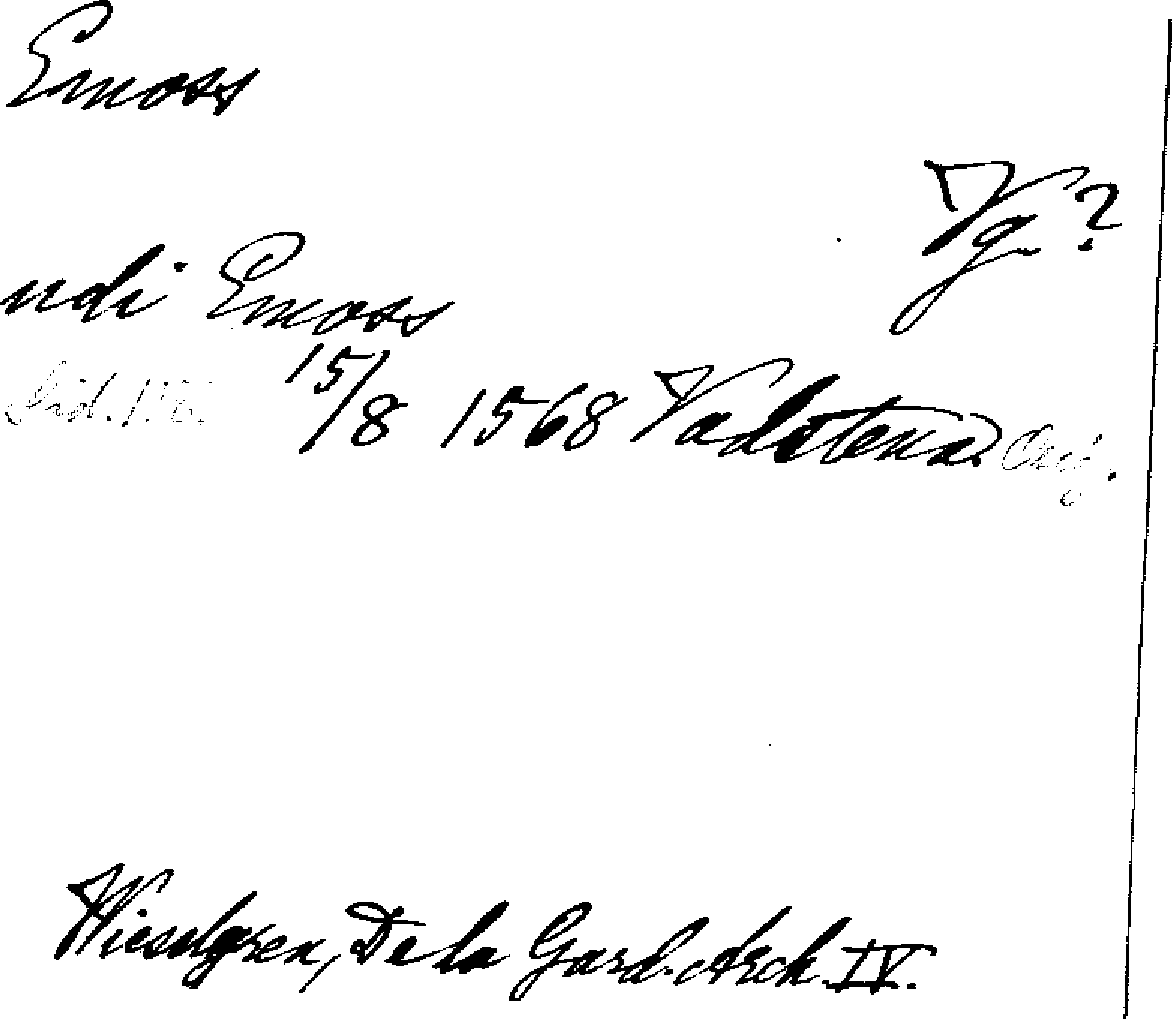 Emoss
Vg?
undi Emoss
15/8 1568 Vadstena. Orig.
Wieselgren, De la Gard. Arch. IV.